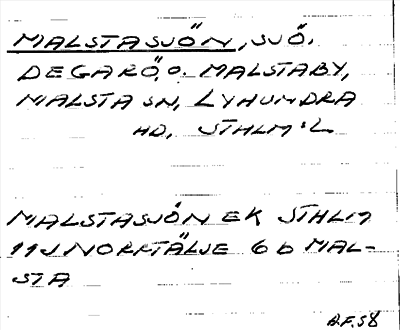 MALSTASJÖN, SJÖ.
DEGARÖ, O. MALSTABY,
MALSTA SN, LYHUNDRA
HD, STHLM:L
MALSTASJÖN EK STHLM
11J NORRTÄLJE 6b MAL-
STA
A.F. 58